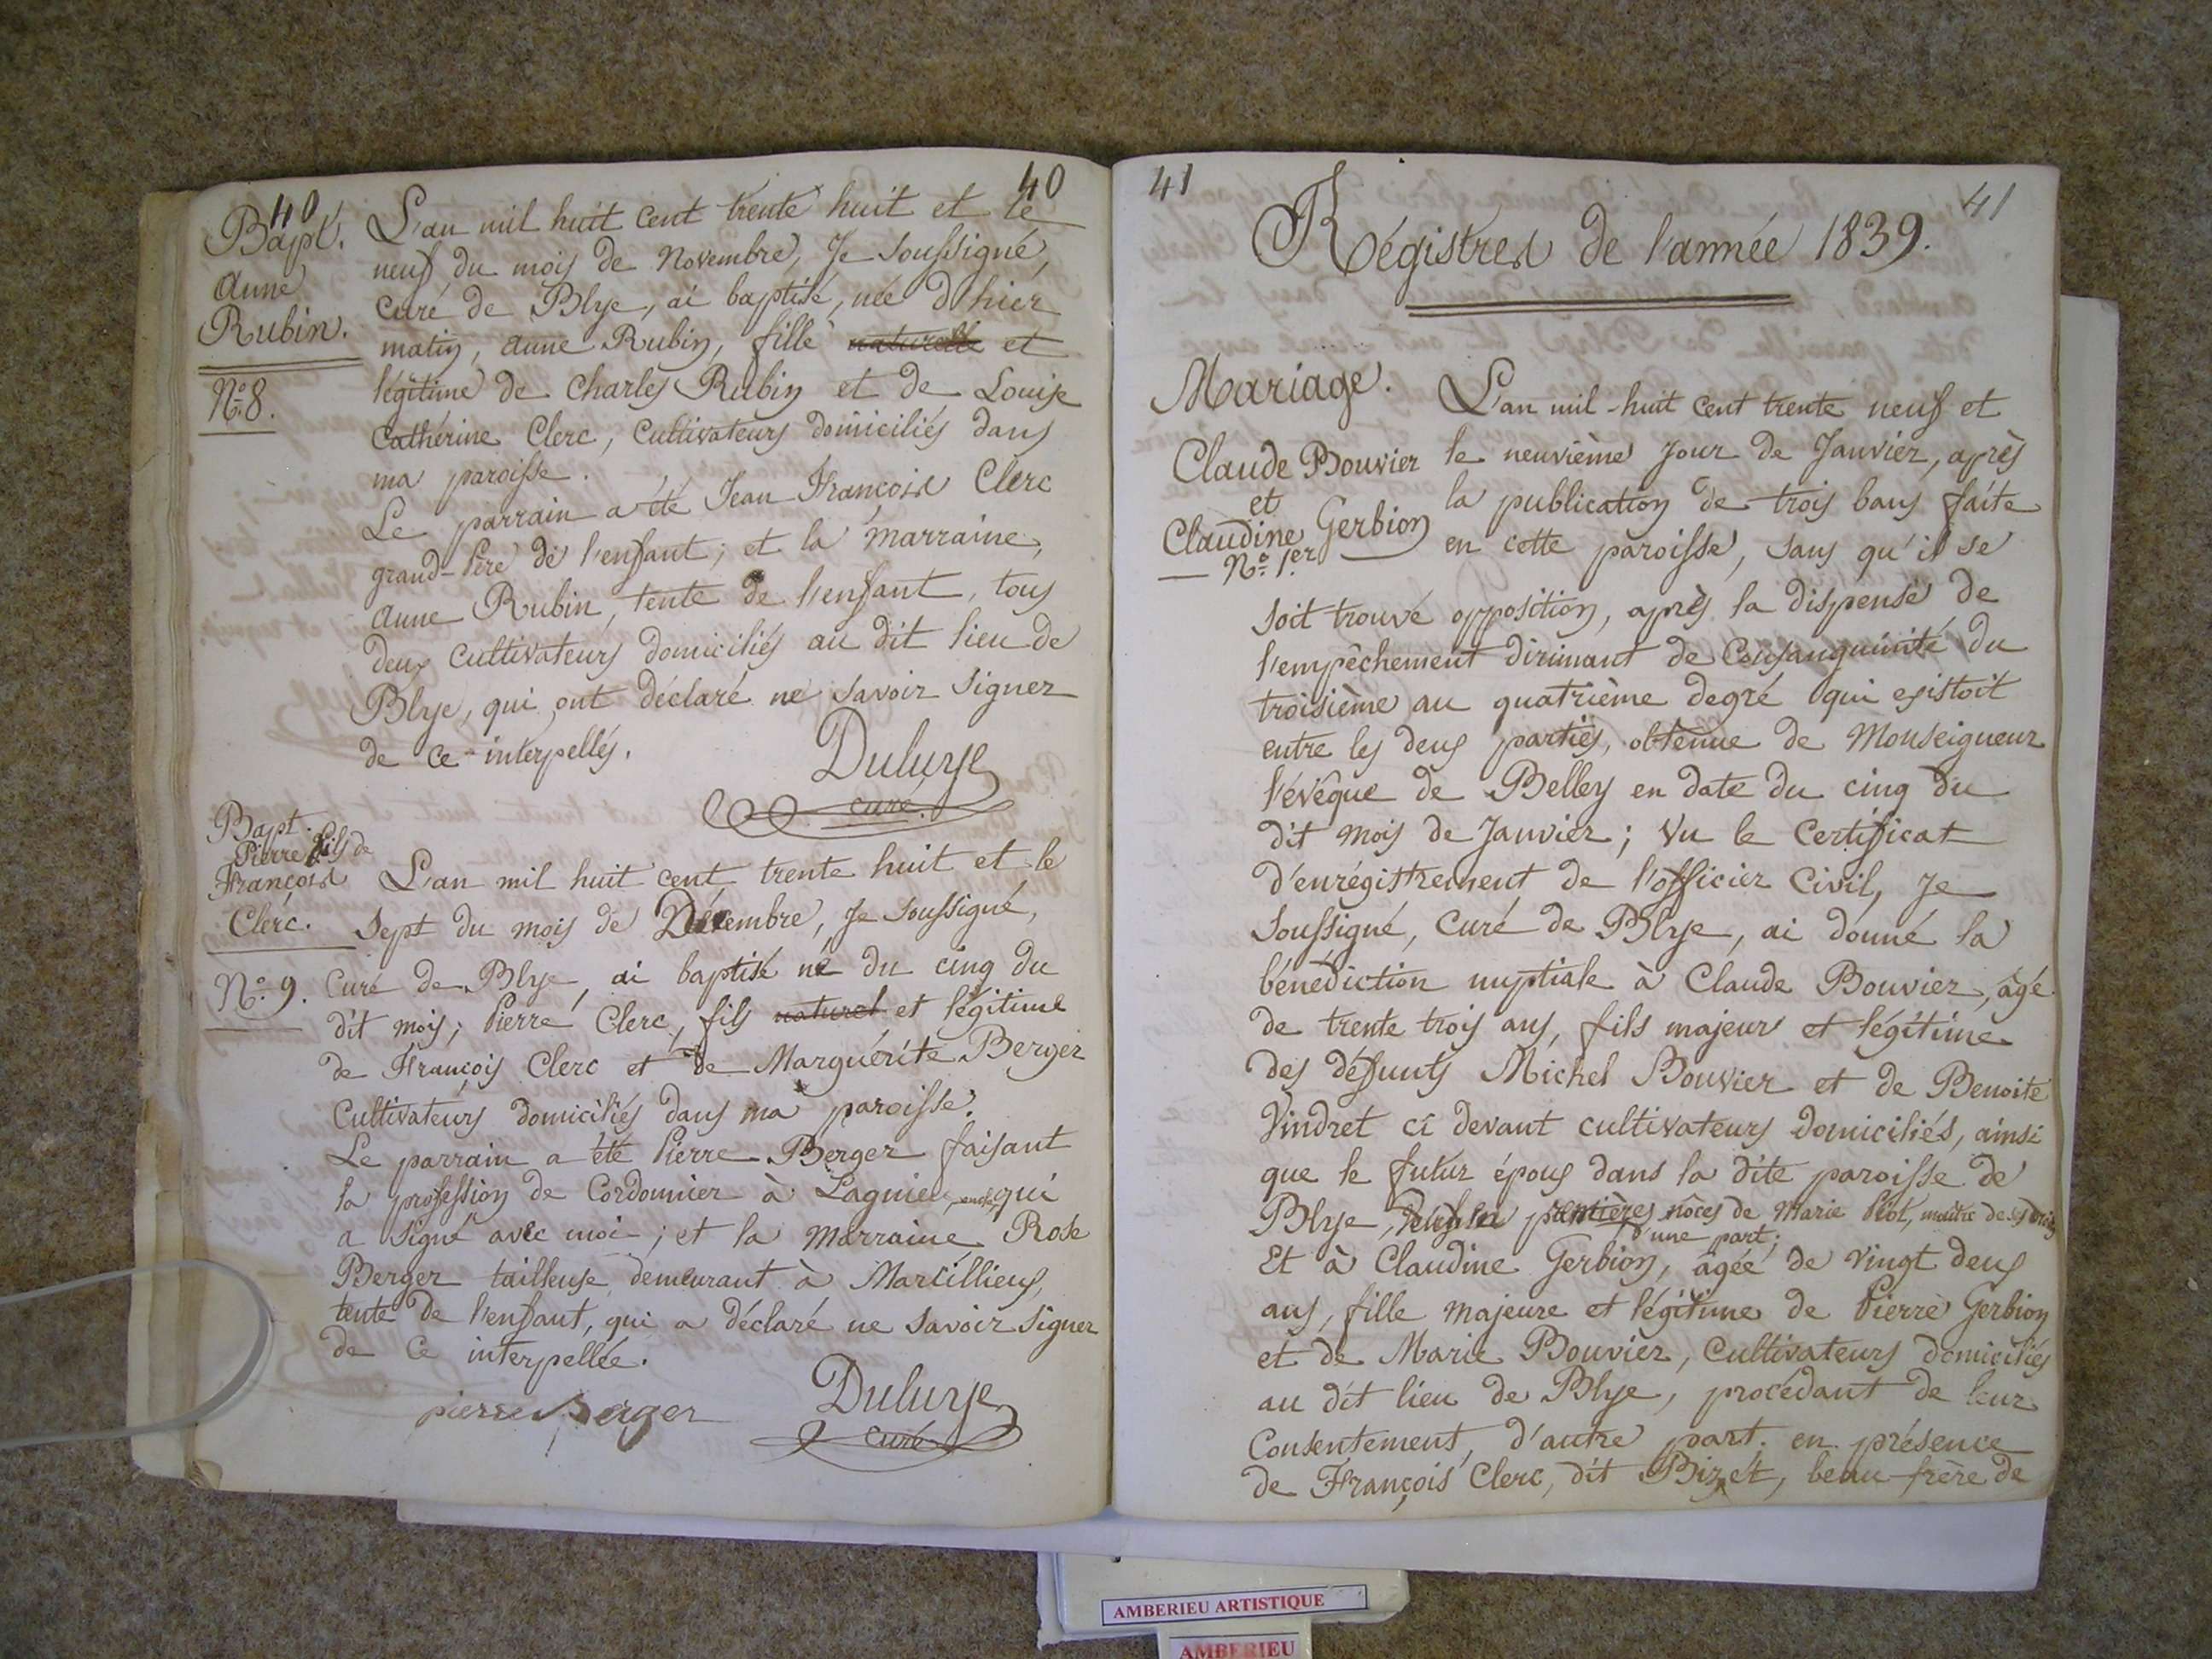 40
40
Bapt.
Anne
Rubin.
N.º 8.
L'an mil huit cent trente huit et le
neuf du mois de Novembre, Je soussigné,
curé de Blye, ai baptisé, née d'hier
matin, anne Rubin, fille naturelle et
légitime de Charles Rubin et de Louise
Cathérine Clerc, Cultivateurs domiciliés dans
ma paroisse.
Le parrain a été Jean François Clerc
grand-Père de l'enfant; et la marraine,
Anne Rubin, tente de l'enfant, tous
deux cultivateurs domiciliés au dit lieu de
Blye, qui ont déclaré ne savoir signer
de ce interpellés.
Duluye
curé.
Bapt.
Pierre fils de
François
Clerc.
N.º 9.
L'an mil huit cent trente huit et le
sept du mois de Décembre, Je soussigné,
Curé de Blye, ai baptisé né du cinq du
dit mois, Pierre Clerc, fils naturel et légitime
de François Clerc et de Marguérite Berger
Cultivateurs domiciliés dans ma paroisse.
Le parrain a été Pierre Berger faisant
la profession de Cordonnier à Lagnieu, qui
a signé avec moi; et la Marraine Rose
Berger tailleuse demeurant à Marcillieux,
tente de l'enfant, qui a déclaré ne savoir signer
de ce interpellée.
pierre Berger
Duluye
curé
41
41
Régistres de l'année 1839.
Mariage.
Claude Bouvier
et
Claudine Gerbion
N.º 1.er
L'an mil-huit cent trente neuf et
le neuvième jour de Janvier, après
la publication de trois bans faite
en cette paroisse, sans qu'il se
soit trouvé opposition, après la dispense de
l'empêchement dirimant de Consanguinité du
troisième au quatrième degré qui existoit
entre les deux parties, obtenue de Monseigneur
l'évêque de Belley en date du cinq du
dit mois de Janvier; Vu le Certificat
d'enrégistrement de l'officier Civil, Je
soussigné, Curé de Blye, ai donné la
bénédiction nuptiale à Claude Bouvier, âgé
de trente trois ans, fils majeur et légitime
des défunts Michel Bouvier et de Benoite
Vindret ci devant cultivateurs domiciliés, ainsi
que le futur époux dans la dite paroisse de
Blye, premières nôces de Marie Piot, maître de ses droits
d'une part;
Et à Claudine Gerbion, âgée de vingt deux
ans, fille majeure et légitime de Pierre Gerbion
et de Marie Bouvier, Cultivateurs domiciliés
au dit lieu de Blye, procédant de leur
Consentement, d'autre part. en présence
de François Clerc, dit Bizet, beau-frère de
AMBERIEU ARTISTIQUE
AMBERIEU